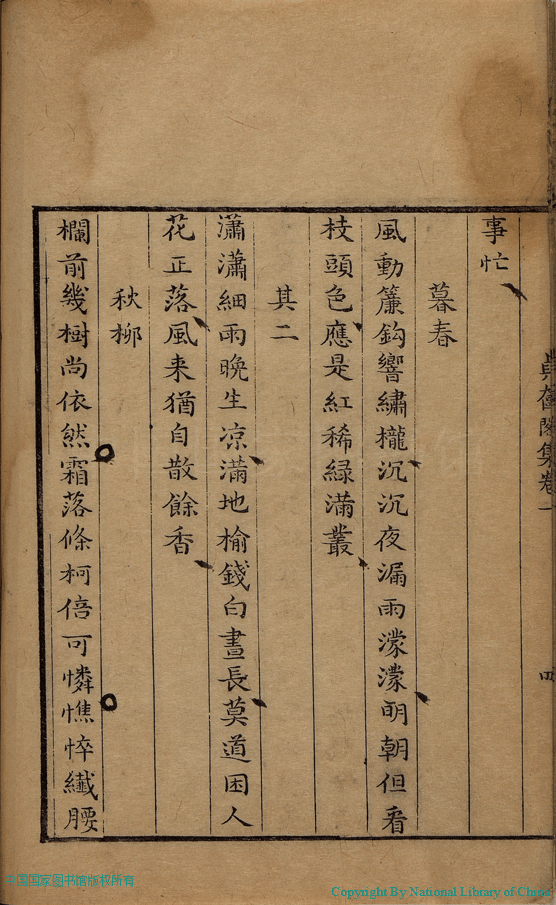 事忙
暮春
風動簾鈎響繡櫳沉沉夜漏雨濛濛明朝但看
枝頭色應是紅稀緑滿叢
其二
瀟瀟細雨晚生凉滿地榆錢白晝長莫道困人
花正落風来猶自散餘香
秋柳
欄前幾樹尚依然霜落條柯倍可憐憔悴纎腰
集卷一
四
国国家图书馆版权所有
Copyright By National Library of China